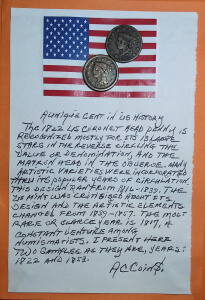 A unique cent in US History
The 1822 US Coronet Head Penny is
recognized mostly for its 13 large
stars in the reverse circling the
value or denomination, and the
matron head in the obverse. Many
artistic varieties were incorporated
thru its popular years of circulation.
This design ran from 1816-1839. The
US Mint was criticised about its
design and the artistic elements
changed from 1839-1857. The most
rare or scarce year is 1817, a
constant venture among
numismatists. I present here
two samples as they are, years:
1822 and 1853.
AC Coins.